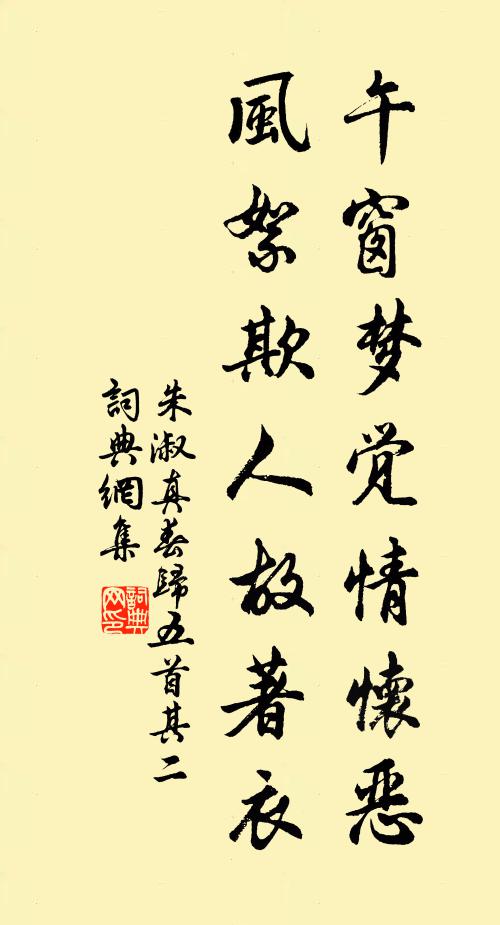 午窗梦觉情懷惡
風絮欺人故著衣
朱淑真春歸五首其二
詞典網集
詞典网印